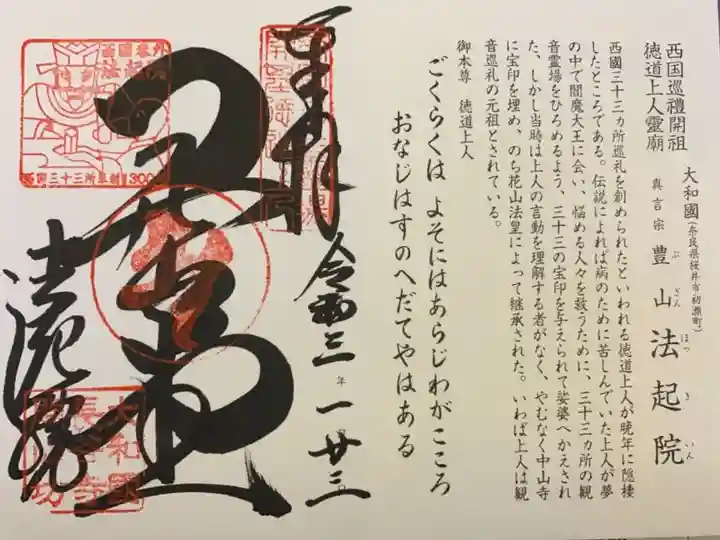 西国巡禮開祖
徳道上人靈廟
大和國(奈良県桜井市初瀬町)
真言宗 豊山 法起院
ぶ ざん ほっ き いん
西國三十三ヵ所巡礼を創められたといわれる徳道上人が晩年に隠棲
したところである。伝説によれば病のために苦しんでいた上人が夢
の中で閻魔大王に会い、悩める人々を救うために、三十三ヵ所の観
音霊場をひろめるよう、三十三の宝印を与えられて娑婆へかえされ
た、しかし当時は上人の言動を理解する者がなく、やむなく中山寺
に宝印を埋め、のち花山法皇によって継承された。いわば上人は観
音巡礼の元祖とされている。
御本尊 徳道上人
ごくらくは よそにはあらじわがこころ
おなじはすのへだてやはある
奉拝
令和三年 一 廿三
法起院
西国三十三所草創1300年